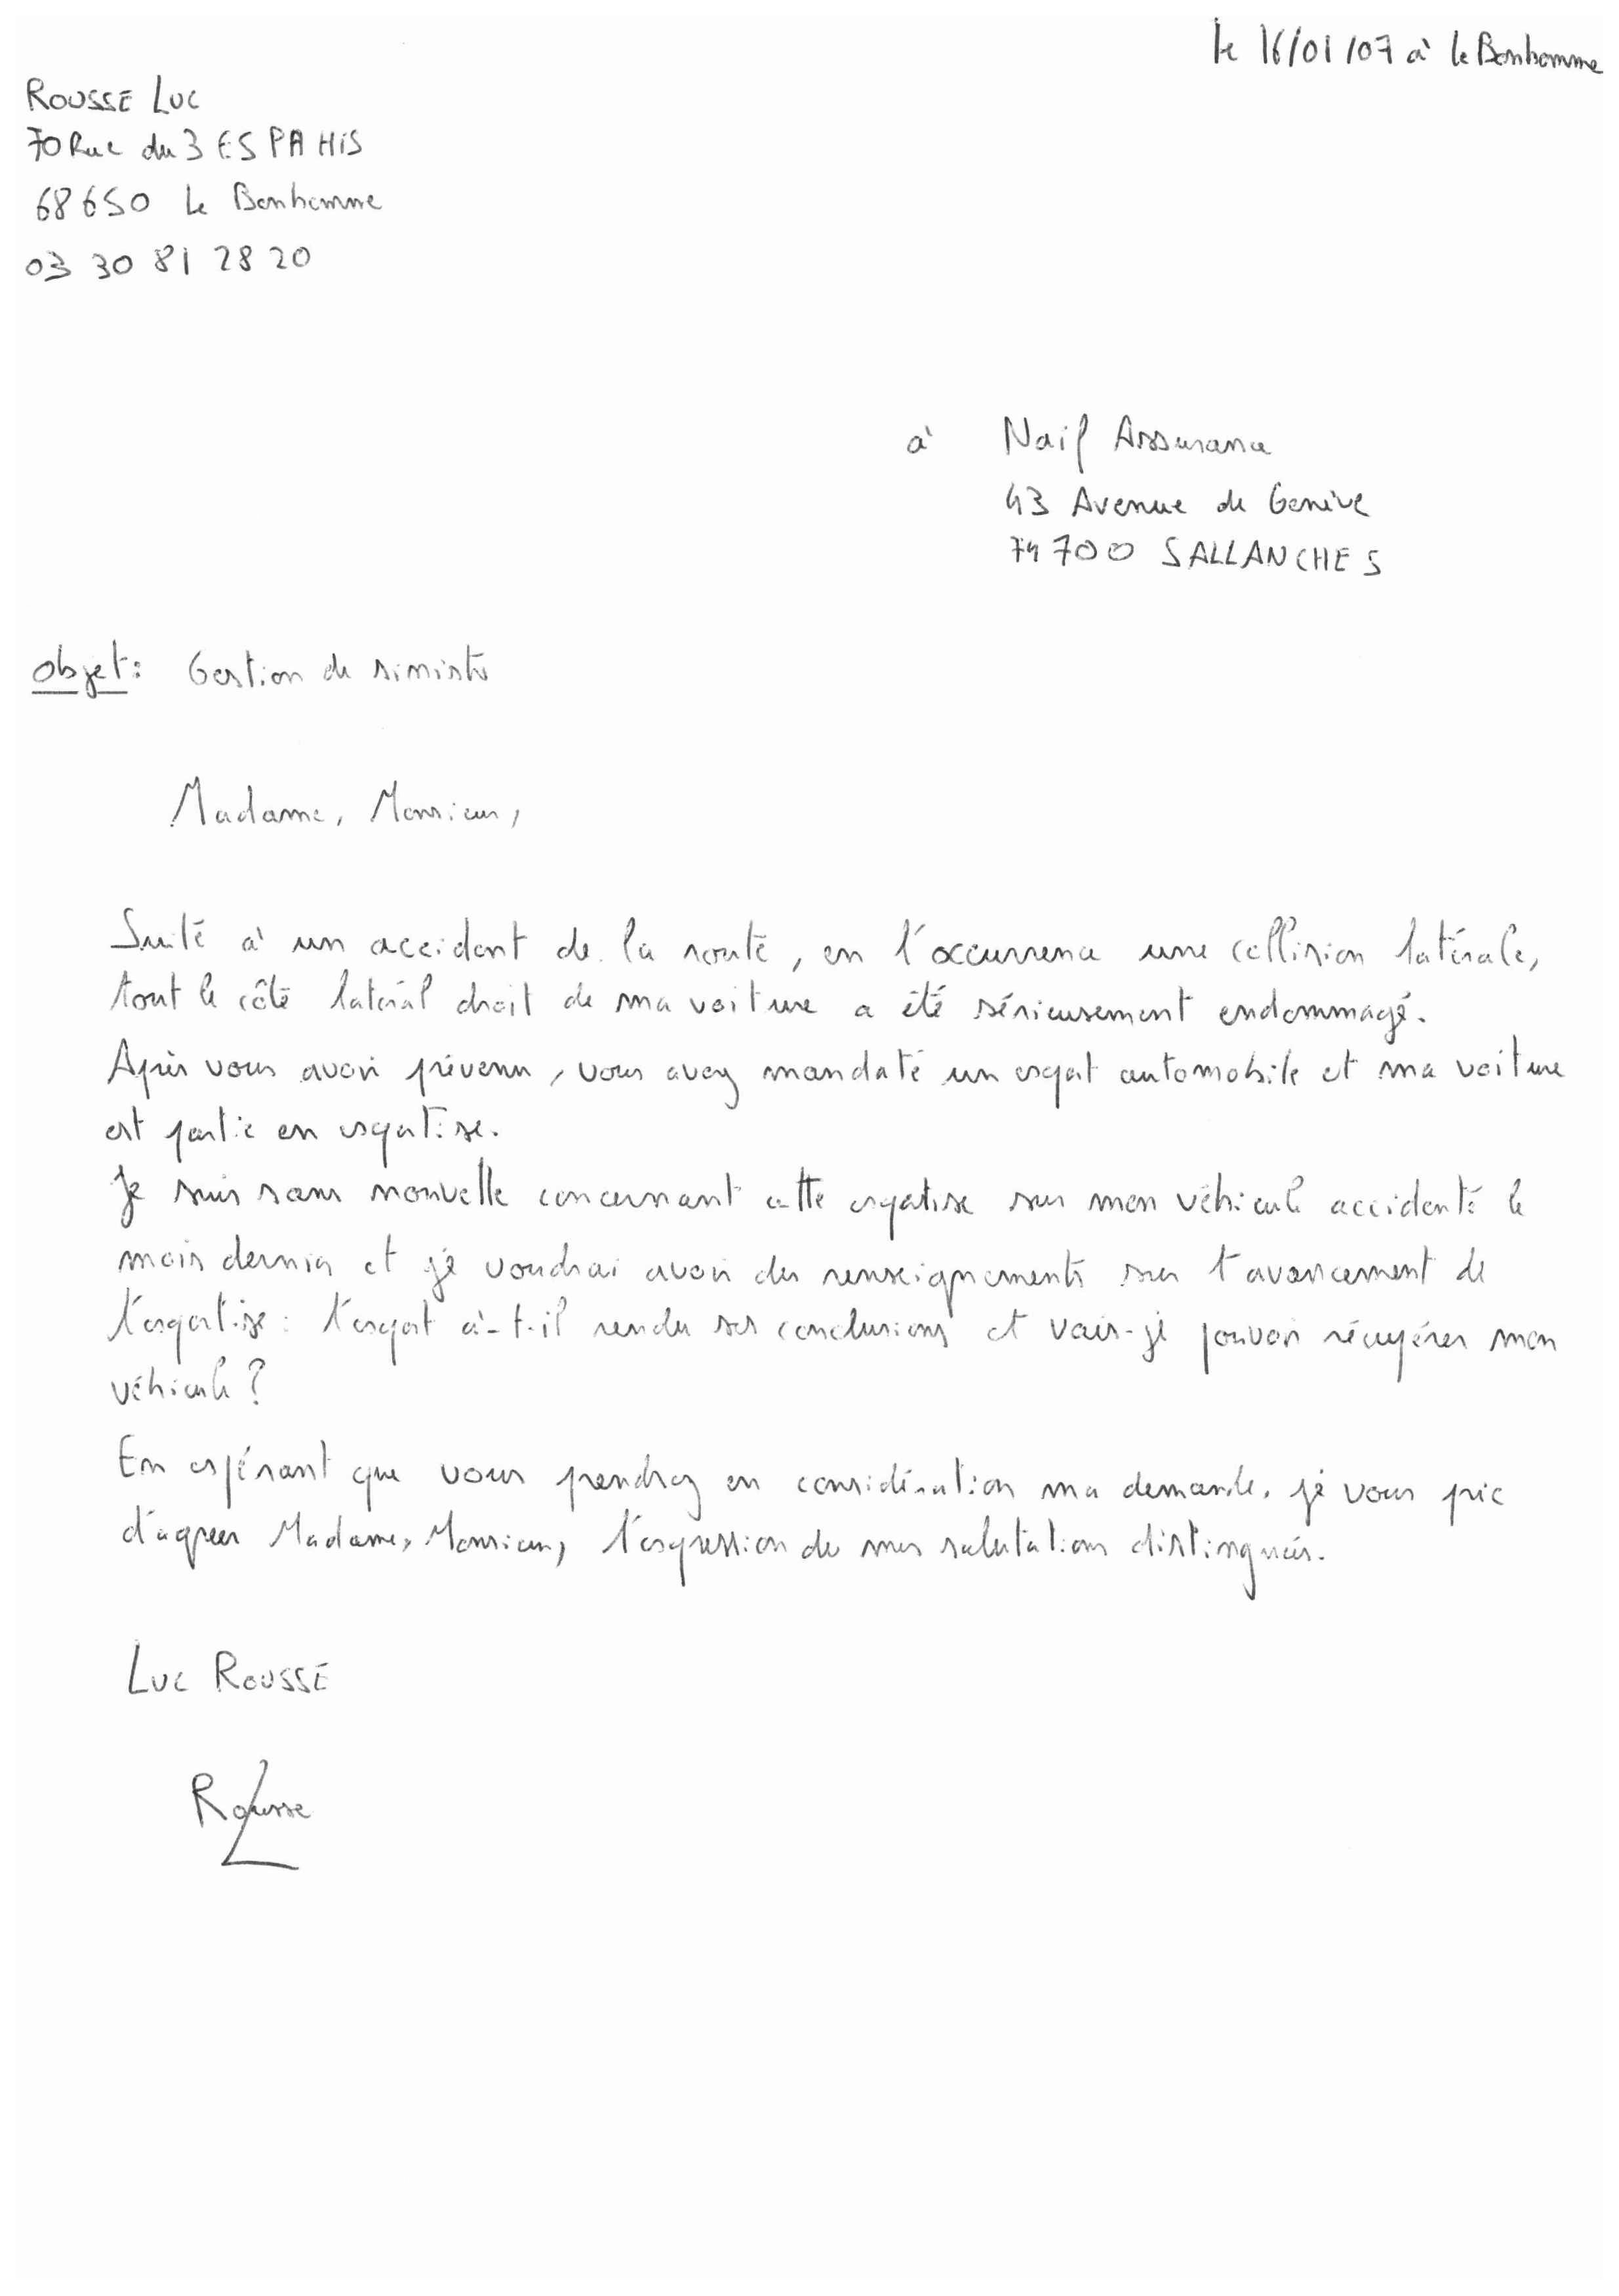 le 16/01/07 à le Bonhomme
ROUSSE LUC
70 Rue du 3 ES PAHIS
68650 le Bonhomme
03 30 81 28 20
à Naif Assurance
43 Avenue de Genève
74700 SALLANCHES
Objet : Gestion de sinistre
Madame, Monsieur,
Suite à un accident de la route, en l'occurrence une collision latérale,
tout le côté latéral droit de ma voiture a été sérieusement endommagé.
Après vous avoir prévenu, vous avez mandaté un expert automobile et ma voiture
est partie en expertise.
Je suis sans nouvelle concernant cette expertise sur mon véhicule accidenté le
mois dernier et je voudrai avoir des renseignements sur l'avancement de
l'expertise : l'expert à-t-il rendu ses conclusions et vais-je pouvoir récupérer mon
véhicule ?
En espérant que vous prendrez en considération ma demande, je vous prie
d'agreer Madame, Monsieur, l'expression de mes salutations distinguées.
LUC ROUSSE
Rousse